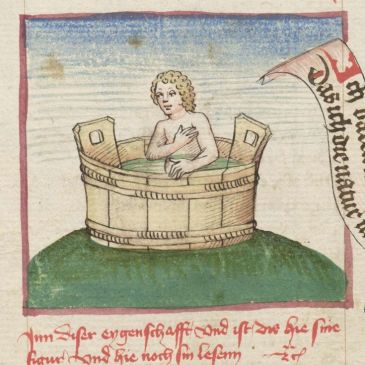 Ich
Das ich die natur
Inn diser eygenschafft Und ist dis hie sine
figur Und hie noch sin lesenn